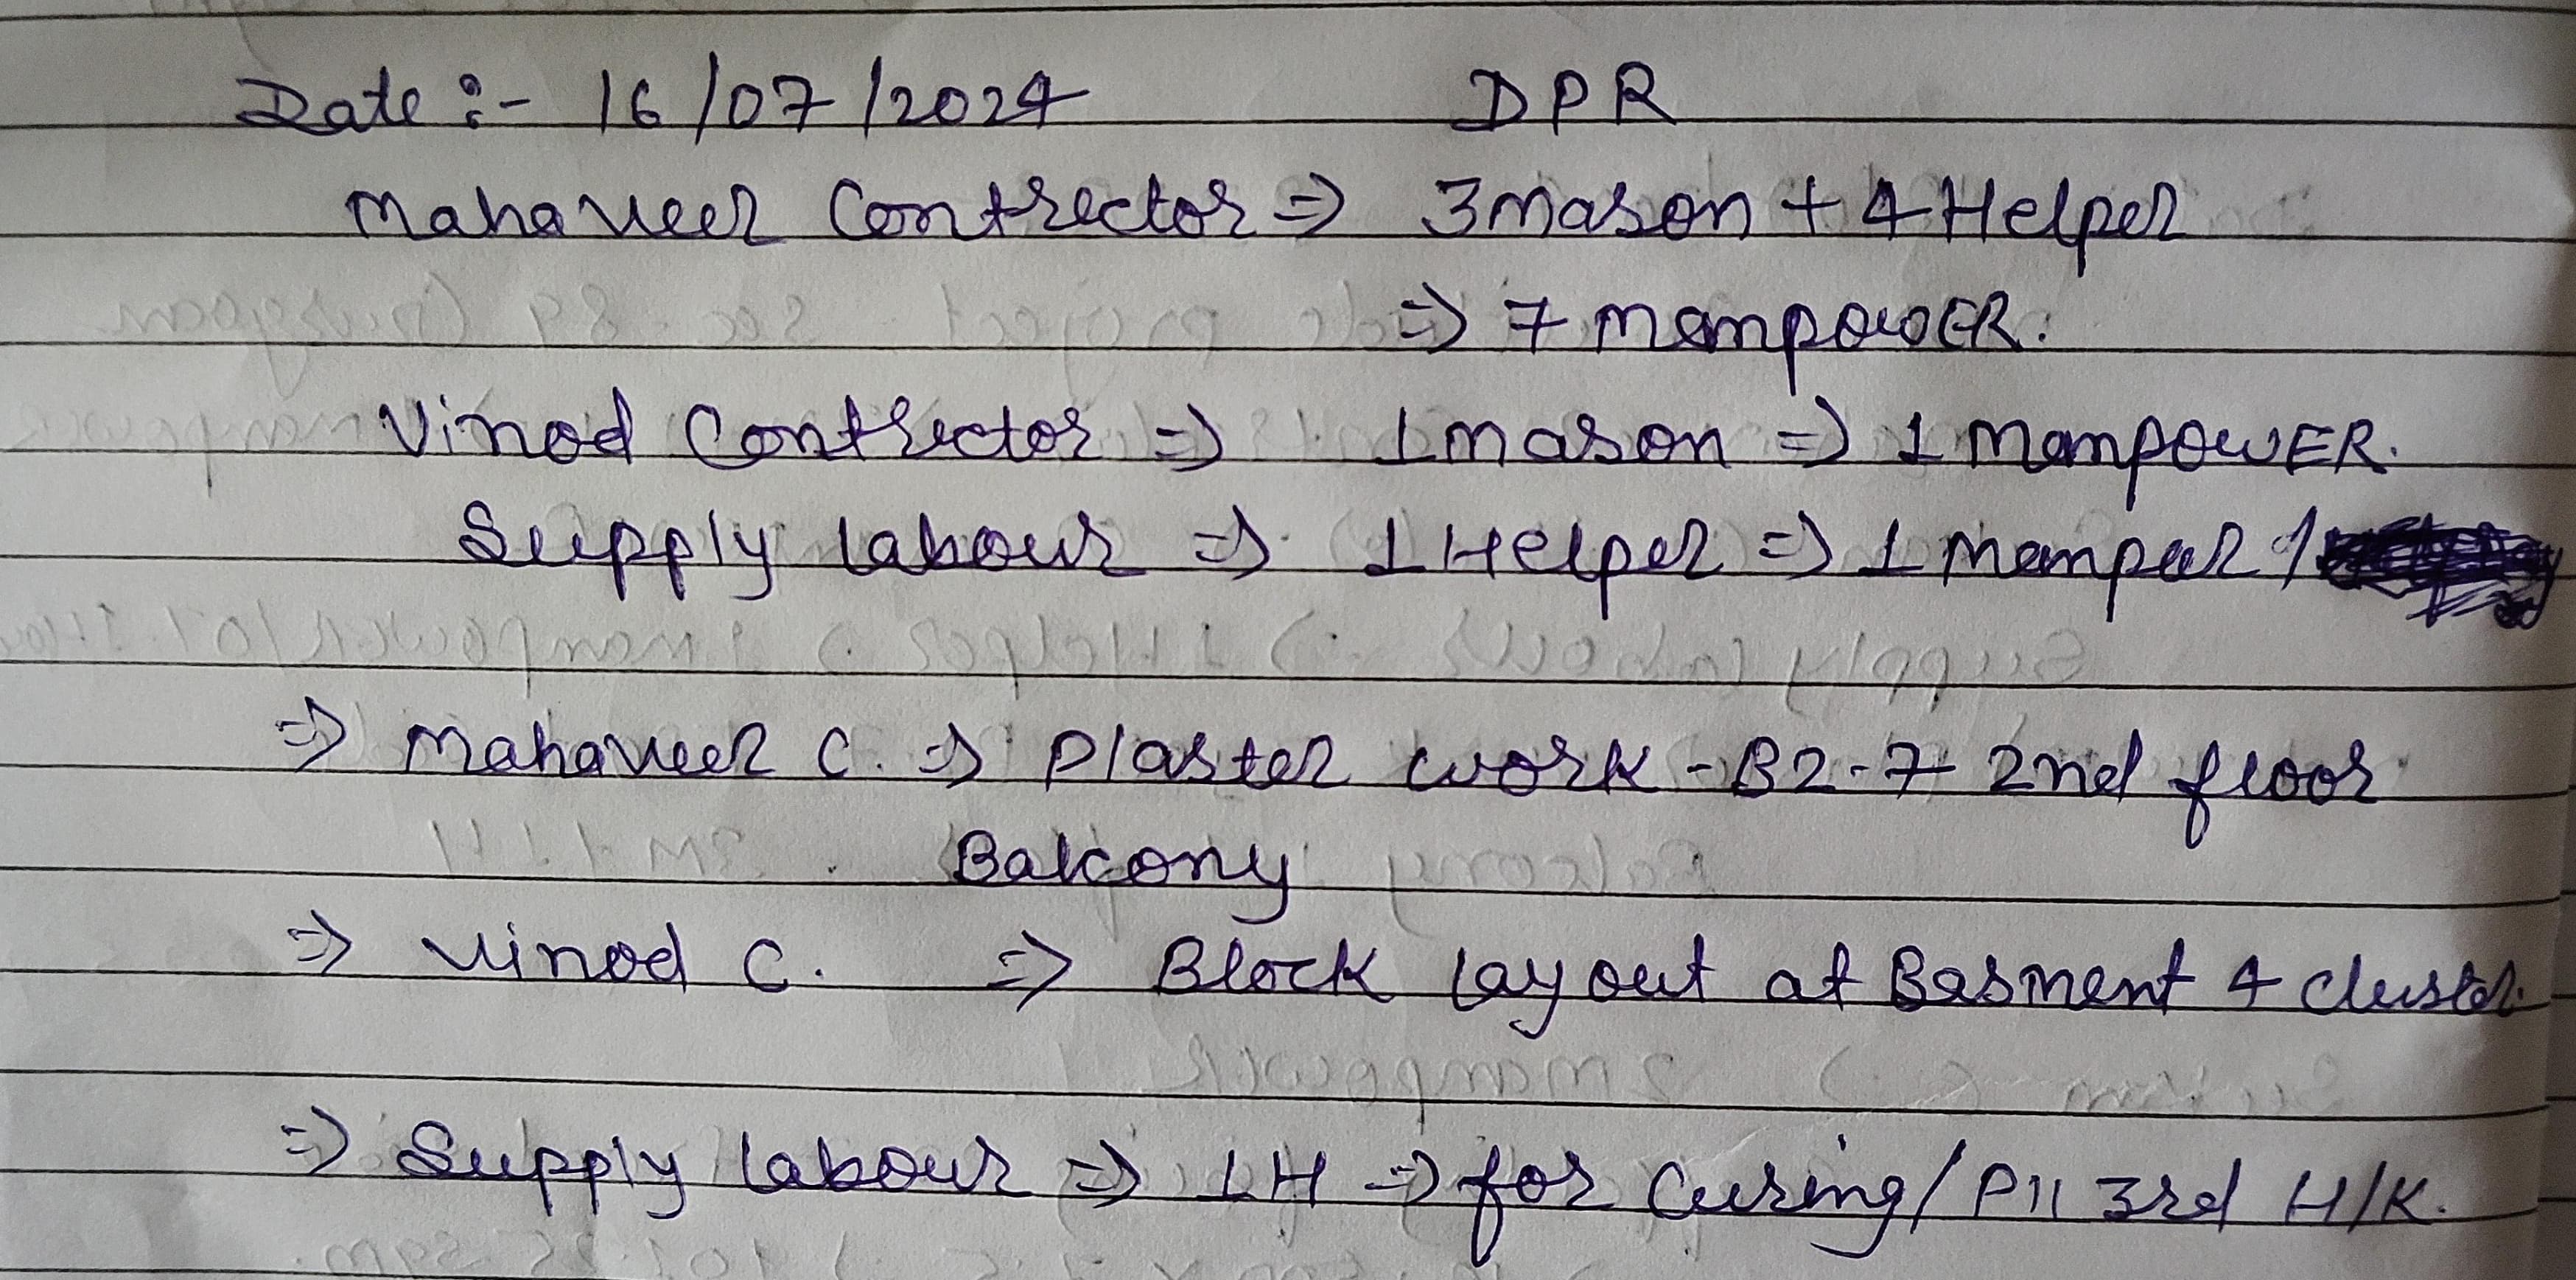 Date :- 16/07/2024 DPR
Mahaveer Contrector => 3 mason + 4 Helper
=> 7 manpowER.
Vinod Contrector => 1 mason => 1 manpowER.
Supply labour => 1 Helper => 1
=> Mahaveer C. => Plaster work - B2-7 2nd floor
Balcony
=> Vinod C. => Block layout at Basment 4 cluster.
=> Supply labour => 1H => for Curing/P11 3rd H/K.